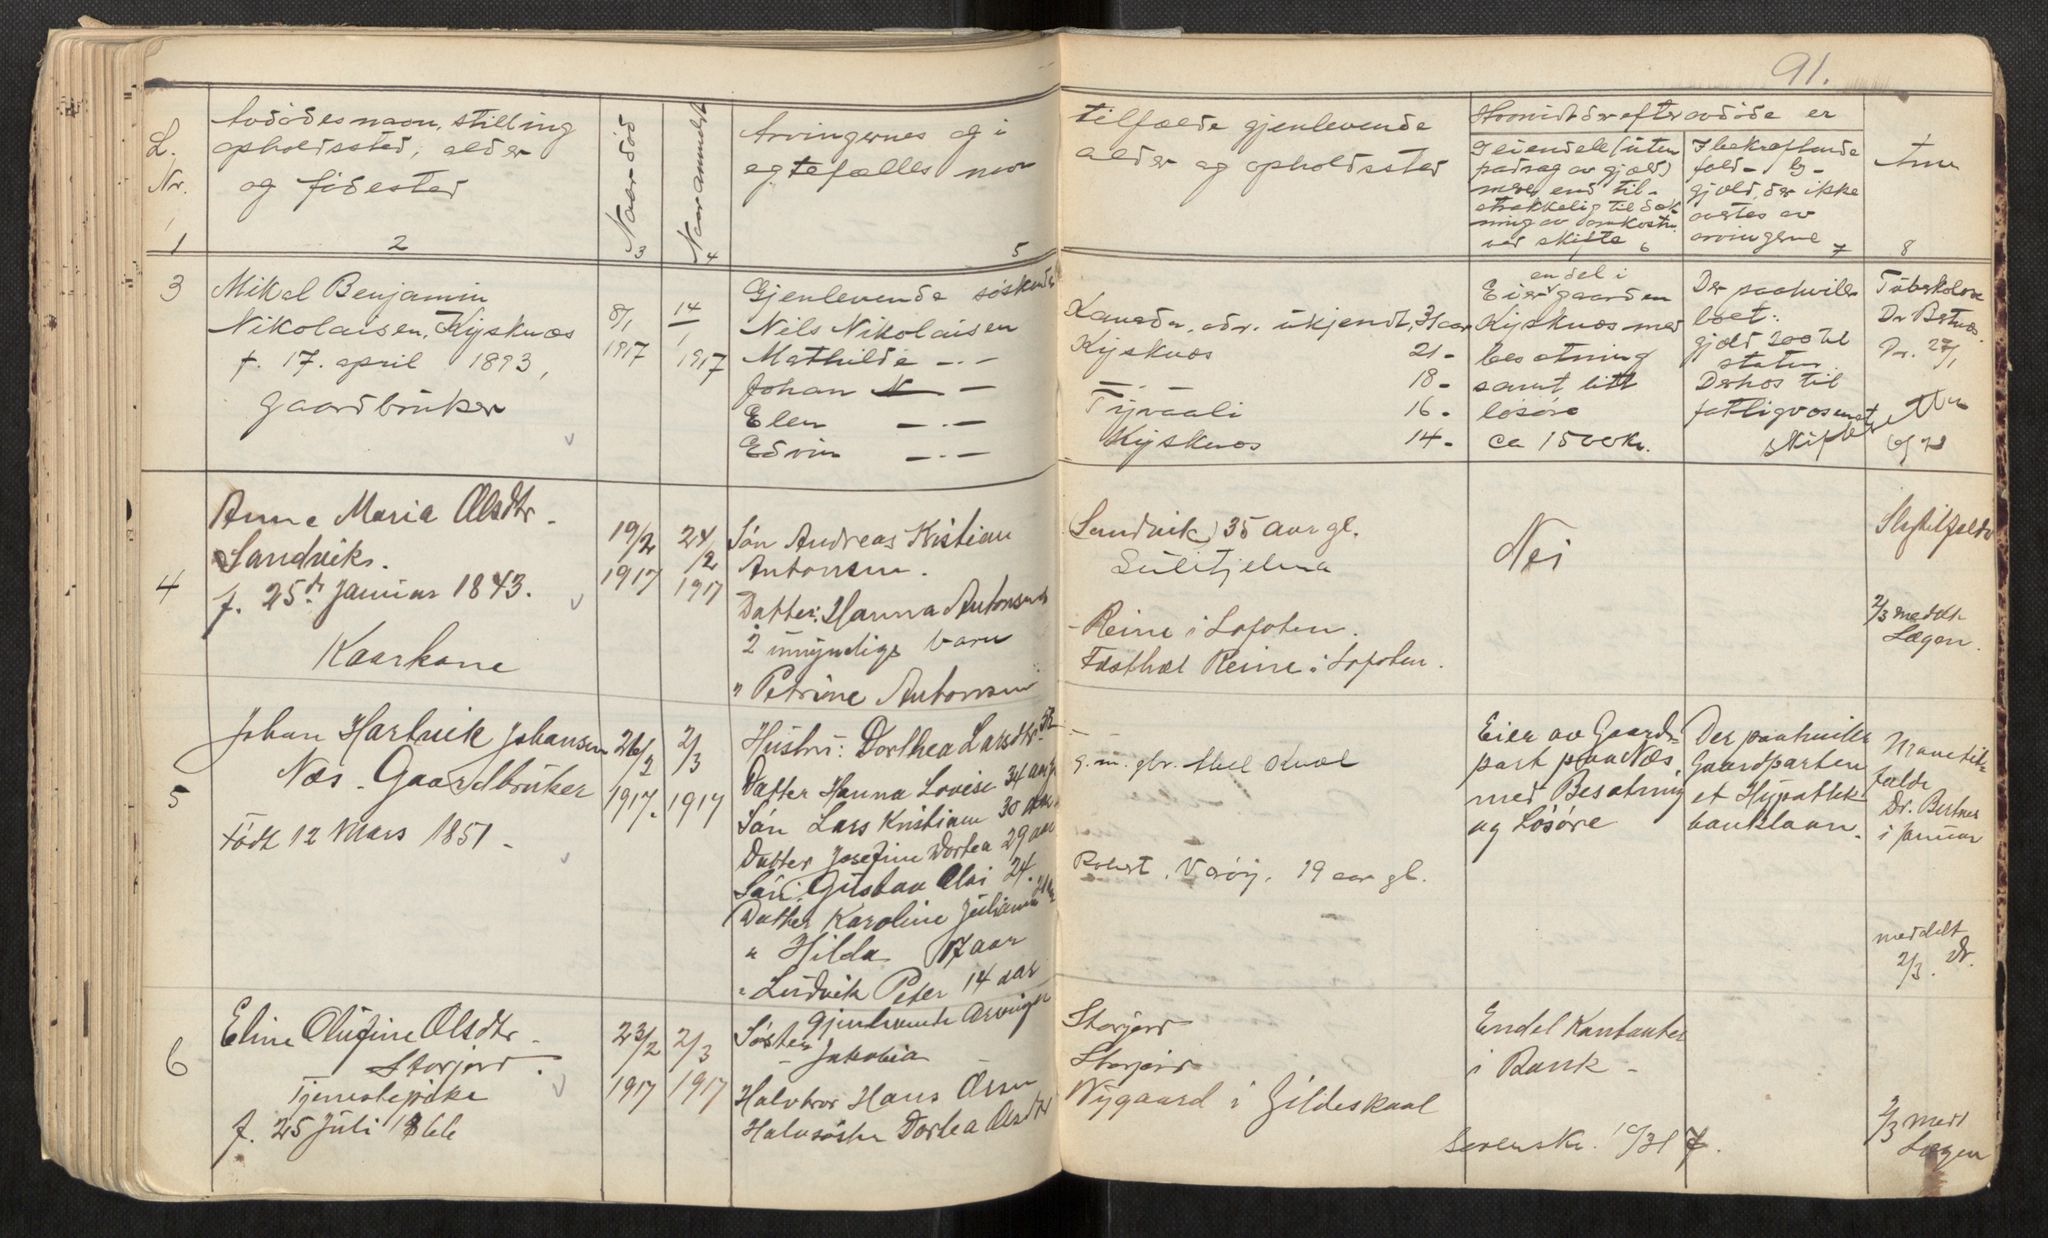 91.
L.
Nr.
1
Avdødes navn, stilling
opholdssted, alder
og fødested
2
Naar død
3
Naar anmeldt
4
Arvingernes og i
egtefælles navn
5
tilfælde gjenlevende
alder og opholdssted
Hvorvidt der efter avdøde er
I eiendele (uten
fradrag av gjæld)
mere end til-
strækkelig til dæk
ning av omkostn.
ved skifte
6
gjæld, der ikke
overtas av
arvingerne
7
Anm
8
3
Mikal Benjamin
Nikolaisen, Kjysknæs
f. 17. april 1893,
gaardbruker
8/1
1917
14
1
1917
Gjenlevende søskende
Nils Nikolaisen
Mathilde -.-
Johan N —
Elen —.—
Edvin —.—
Kanada, adr. ukjendt,
Kjysknæs 21-
—.— 18-
16-
Kjysknæs 14-
en del i
Eier gaarden
Kjysknæs med
besætning
samt litt
løsøre
ca 1500 kr.
Der paahviler
gjæld 200 til
staten
Derhos til
fattigvæsenet
Tuberkolose
27/1
4
Anna Maria Olsdtr.
Sandvik.
f. 25de Januar 1843.
Kaarkone
19/2
1917
24/2
1917
Søn Andreas Kristian
Antonsen.
Datter: Hanna Antonsen
2 umyndige barn
" Petrine Antonsen
(Sandvik) 35 aar gl.
Sulitjelma
- Reine i Lofoten.
Reine i Lofoten.
Nei
Slagtilfælde
2/3 meddelt
Lægen.
5
Johan Hartvik Johansen
Næs. Gaardbruker
Født 12 Mars 1851.
26/2
1917.
2/3
1917
Hustru: Dorthea Larsdtr.
Datter Hanna Lovise 34 aar
Søn Lars Kristian 30 aar
Datter Josefine Dortea 29 aar
Søn: Gustav Olai 24.
Datter Karoline Juliane
" Hilda 17 aar
" Ludvik Peter 14 aar
g. m. gbr.
Robert, Værøy. 19 aar gl.
Eier av Gaards-
part paa Næs
med Besætning
og Løsøre
Der paahviler
Gaardparten
et Hypothek
banklaan.
Mavetil-
fælde
Dr. Bertnes
i januar
meddelt
2/3. Dr.
6
Eline Olufine Olsdtr
Storjord.
Tjenestepike
f. 25 Juli 1866
23/2
1917
2/3
1917
Gjenlevende Arvinger
Søster
- Jakobia
Halvbror Hans Olsen
Halvsøster Dortea Olsdtr
Storjord
Storjord
Nygaard i Gildeskaal
Endel Kontanter
i Bank -
2/3 medd
Lægen